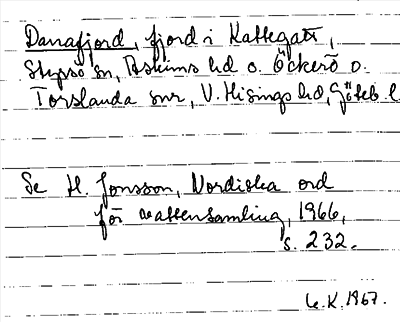 Danafjord, fjord i Kattegatt,
Styrsö sn, Askims hd o. Öckerö o.
Torslanda snr, V. Hisings hd, Göteb l.
Se H. Jonsson, Nordiska ord
för vattensamling, 1966,
s. 232.
G.K. 1967.